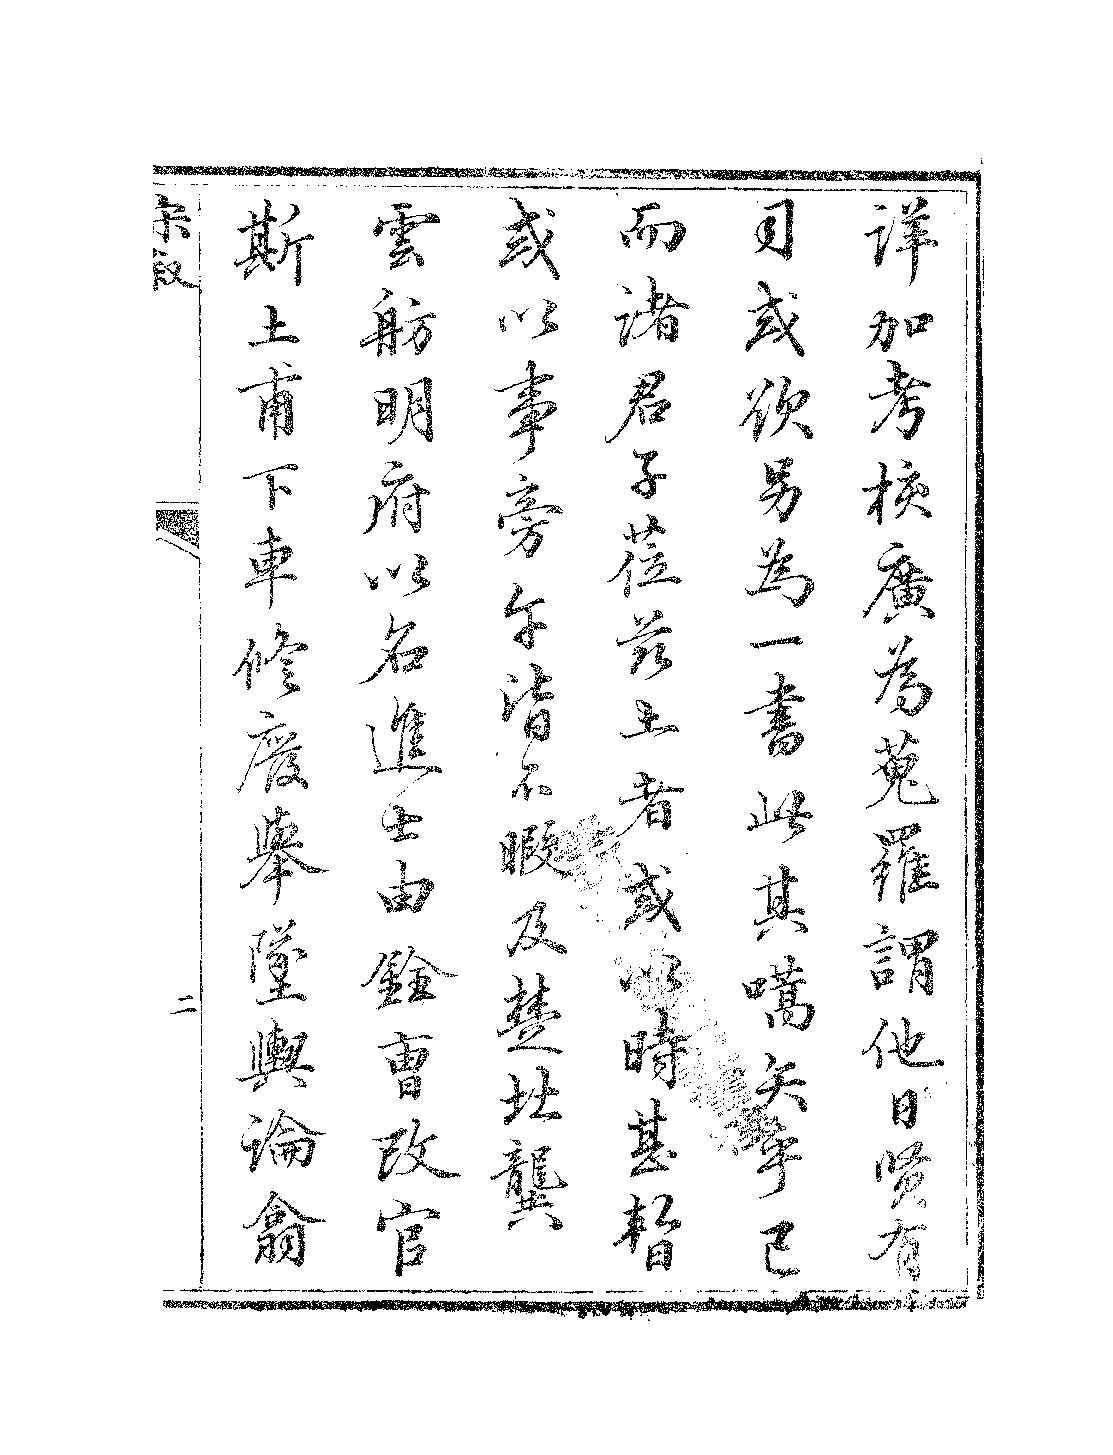 詳加考核廣為蒐羅謂他日賢有
司或欲另為一書此其嚆矢乎已
而諸君子莅茲土者或以時甚暫
或以事旁午皆不暇及楚北龔
雲舫明府以名進士由銓曹改官
斯土甫下車修廢舉墜輿論翕
二